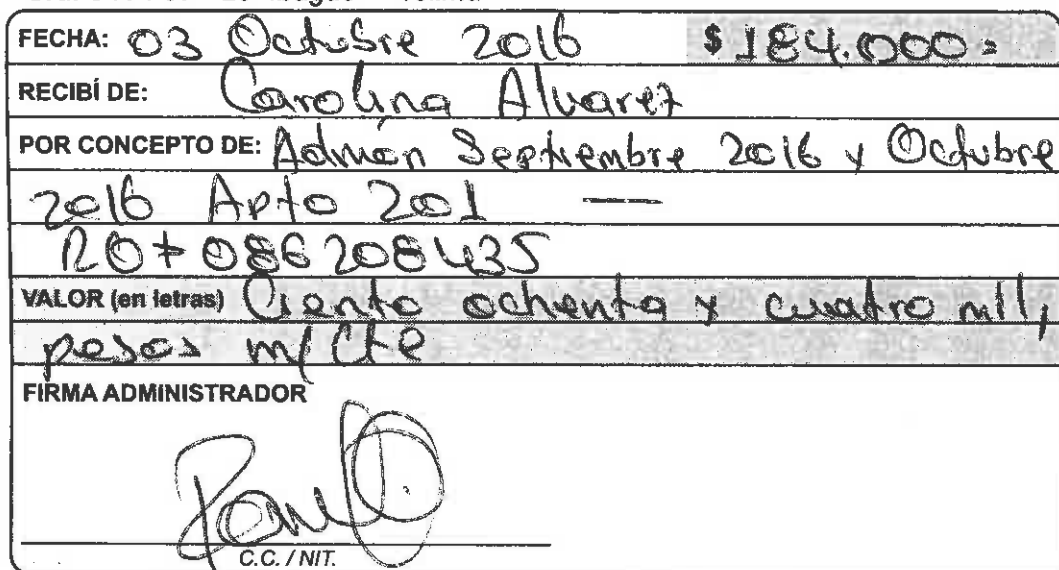 FECHA: 03 Octubre 2016 $ 184.000=
RECIBÍ DE: Carolina Alvarez
POR CONCEPTO DE: Admón Septiembre 2016 y Octubre
2016 Apto 201 —
086208435
VALOR (en letras) Ciento ochenta y cuatro mil,
pesos m/cte
FIRMA ADMINISTRADOR
C.C. / NIT.